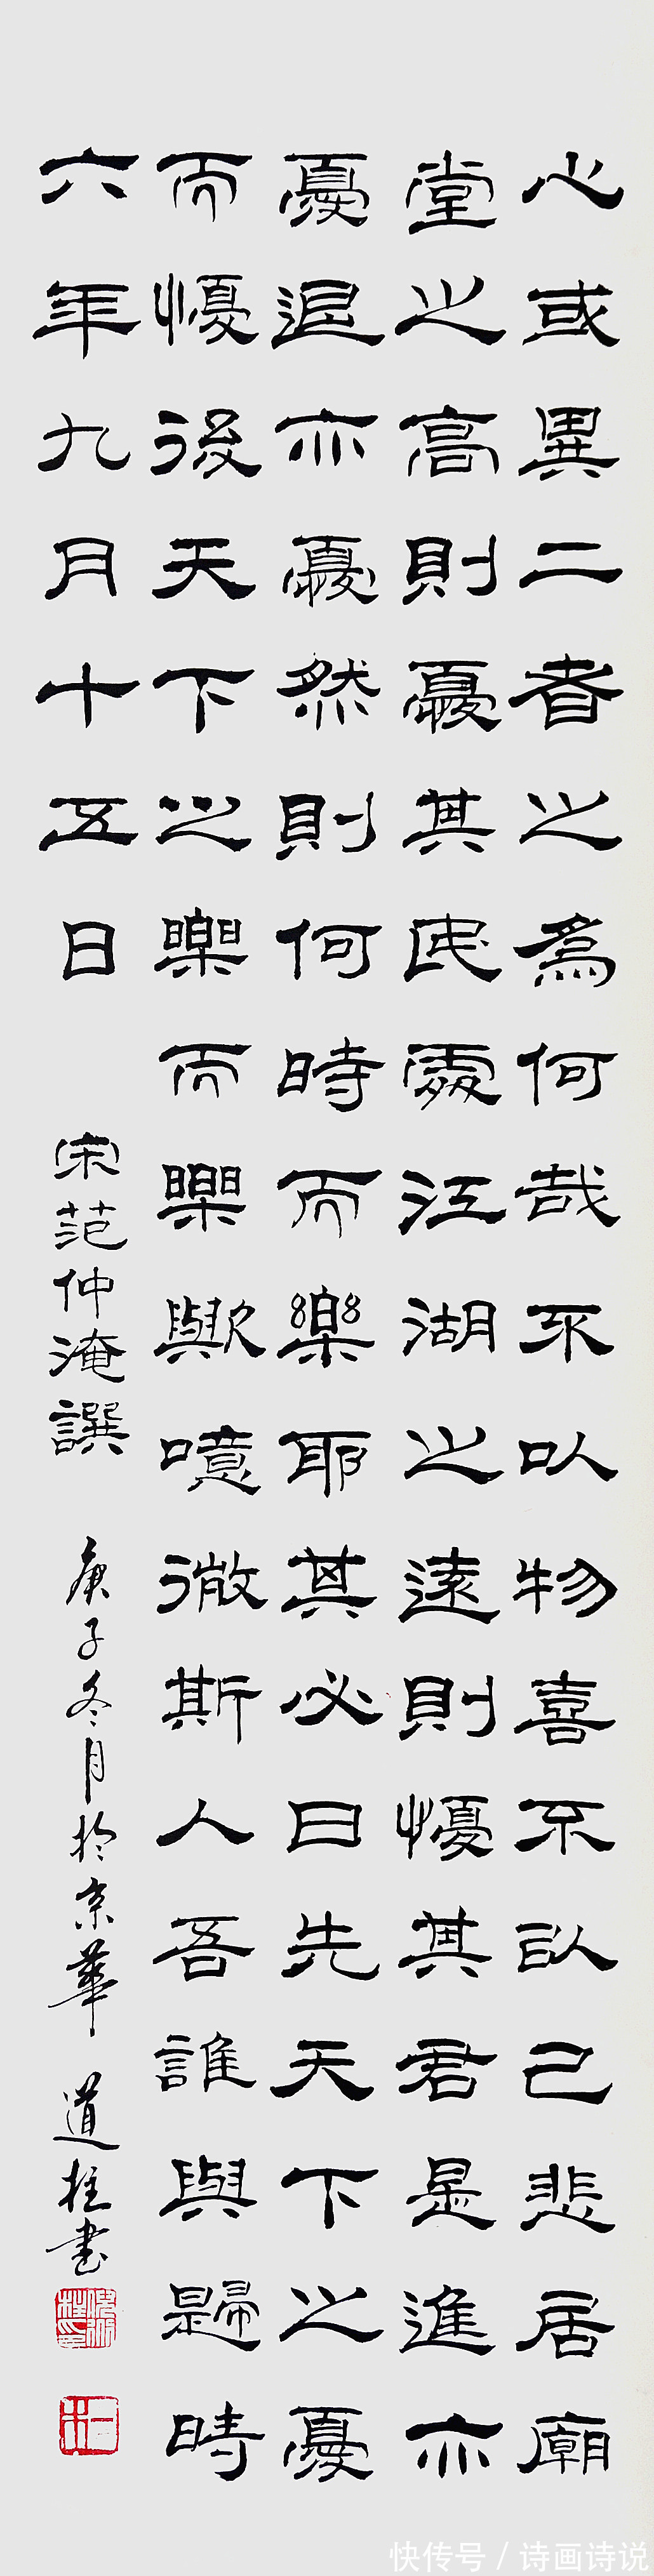 心或異二者之為何哉不以物喜不以己悲居廟
堂之高則憂其民處江湖之遠則懮其君是進亦
憂退亦憂然則何時而樂耶其必曰先天下之憂
而懮後天下之樂而樂歟噫微斯人吾誰與歸時
六年九月十五日 宋范仲淹譔 庚子冬月於京華 道柱書
快传号 / 诗画诗说